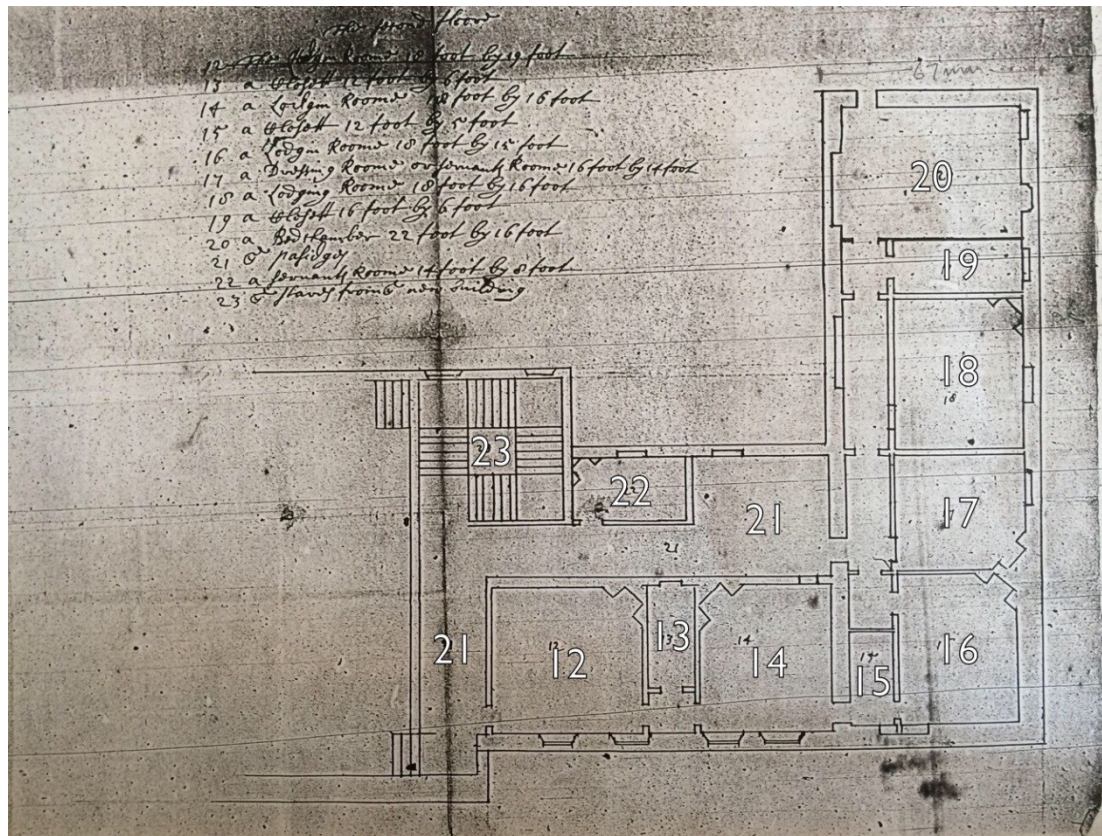 The second floor
12 The Lodgin Roome 18 foot by 19 foot
13 a Closett 12 foot by 6 foot
14 a Lodgin Roome 18 foot by 16 foot
15 a Closett 12 foot by 5 foot
16 a Lodgin Roome 18 foot by 15 foot
17 a Dressing Roome or servants Roome 16 foot by 14 foot
18 a Lodging Roome 18 foot by 16 foot
19 a Closett 16 foot by 6 foot
20 a Bedchamber 22 foot by 16 foot
21 passages
22 a servants Roome 14 foot by 8 foot
23 staires new building
67
20
19
18
18
23
22
21
17
21
12
12
13
13
14
14
15
16
21